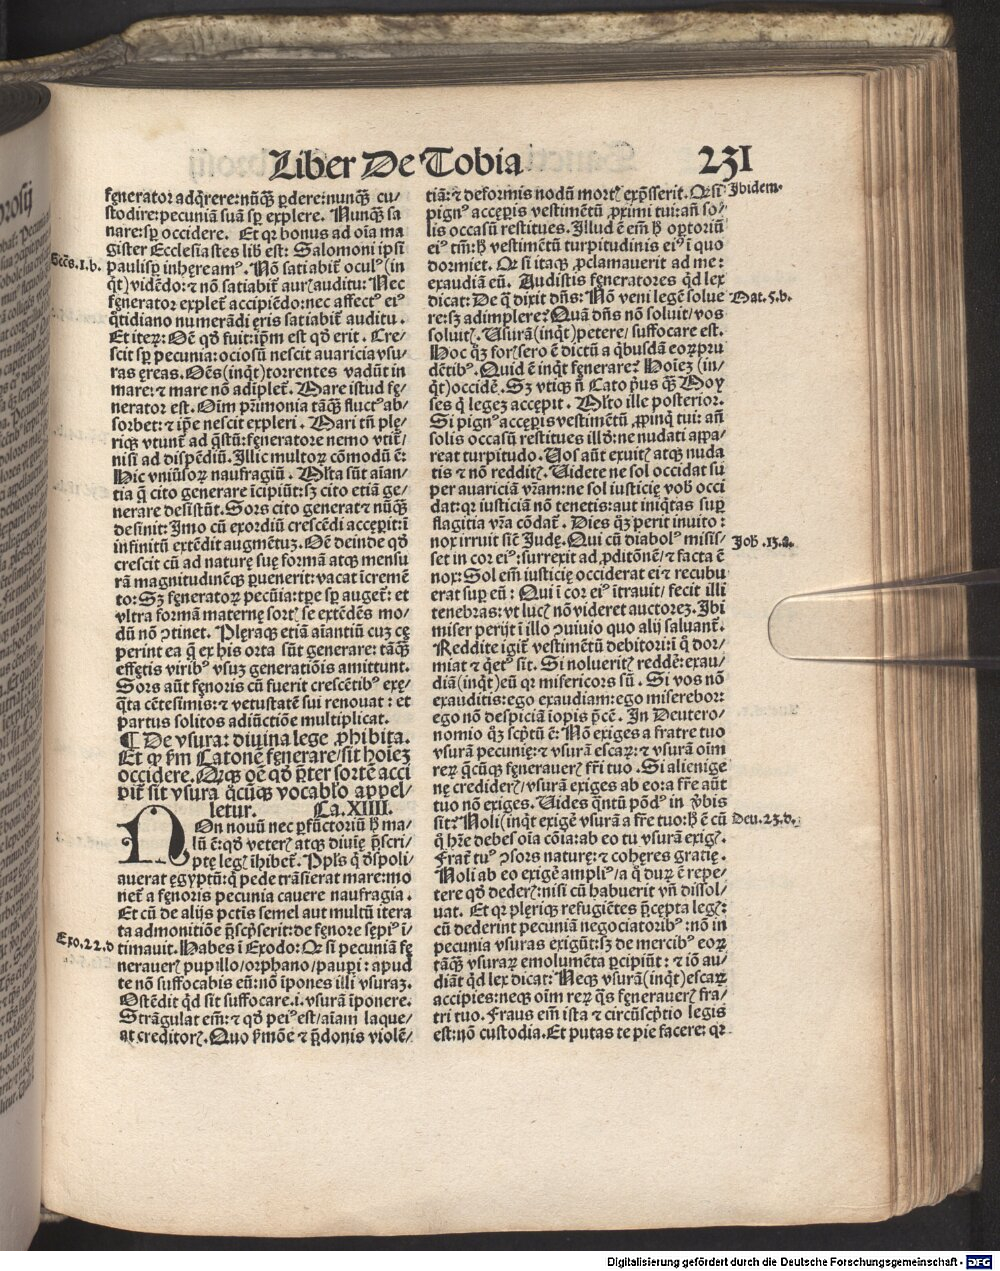 Liber De Tobia 231
fęnerator adq̄rere:nūq̄ꝫ ꝑdere:nunq̄ꝫ cu/
stodire:pecuniā suā sꝑ explere. Nunq̄ꝫ sa
nare:sꝑ occidere. Et qꝛ bonus ad oīa ma
gister Ecclesiastes lib̄ est: Salomoni ip̄si
Eccēs.1.b.
paulisꝑ inhęreamꝰ. Nō satiabit̄ oculꝰ(in
q̄t)vidēdo:⁊ nō satiabit̄ aurꝭ auditu: Nec
fęnerator explet̄ accipiēdo:nec affectꝰ eiꝰ
q̄tidiano numerādi ęris satiabit̄ auditu.
Et iteꝝ: Oē qd̄ fuit:ip̄m est qd̄ erit. Cre/
scit sꝑ pecunia: ociosū nescit avaricia vsu/
ras ęreas. Oēs(inq̄t)torrentes vadūt in
mare:⁊ mare nō adiplet̄. Mare istud fę/
nerator est. Oīm pr̄imonia tāq̄ꝫ fluctꝰ ab/
sorbet:⁊ ip̄e nescit expleri. Mari tn̄ plę/
riqꝫ vtunt̄ ad q̄stū:fęneratore nemo vtit̄/
nisi ad dispēdiū. Illic multoꝝ cōmodū ē:
Hic vniūsoꝝ naufragiū. Ml̄ta sūt aīan/
tia q̄ cito generare īcipiūt:sꝫ cito etiā ge/
nerare desistūt. Sors cito generat ⁊ nūq̄ꝫ
desinit: Imo cū exordiū crescēdi acceꝑit:ī
infinitū extēdit augmētuꝫ. Oē deinde qd̄
crescit cū ad naturę suę formā atqꝫ mensu
rā magnitudinēqꝫ ꝑuenerit:vacat īcremē
to: Sꝫ fęneratoꝝ pecūia:tꝑe sꝑ auget̄: et
vltra formā maternę sortꝭ se extēdēs mo/
dū nō ꝯtinet. Plęraqꝫ etiā aīantiū cuꝫ cę
perint ea q̄ ex his orta sūt generare: tāq̄ꝫ
effętis viribꝰ vsuꝫ generatiōis amittunt.
Sors aūt fęnoris cū fuerit crescētibꝰ exę/
q̄ta cētesimis:⁊ vetustatē sui renouat: et
partus solitos adiūctiōe multiplicat.
¶ De vsura: diuina lege ꝓhibita.
Et ꝙ ẜm Catonē fęnerare/sit hoīeꝫ
occidere. Atqꝫ oē qd̄ p̄ter sortē acci
pit̄ sit vsura q̄cūqꝫ vocablo appel/
letur. Ca.XIIII.
NOn nouū nec ꝑfūctoriū ħ ma/
lū ē:qd̄ veterꝭ atqꝫ diuię p̄scri/
ptę legꝭ īhibet̄. Ppl̄s q̄ d̄spoli/
auerat ęgyptū:q̄ pede trāsierat mare:mo
net̄ a fęnoris pecunia cauere naufragia.
Et cū de alijs pctīs semel aut multū itera
ta admonitiōe p̄scp̄serit:de fęnore sępiꝰ ī/
Exo.22.d
timauit. Habes ī Exodo: Qꝛ si pecuniā fę
nerauerꝭ pupillo/orphano/pauꝑi: apud
te nō suffocabis eū:nō īpones illi vsuraꝫ.
Ostēdit qd̄ sit suffocare.i.vsurā īponere.
Strāgulat em̄:⁊ qd̄ peiꝰ est/aīam laque/
at creditorꝭ. Quo ẜmōe ⁊ p̄donis violē/
tiā:⁊ deformis nodū mortꝭ exp̄sserit. Qꝛ si
Ibidem.
pignꝰ acceꝑis vestimētū ꝓximi tui:an̄ so/
lis occasū restitues. Illud ē em̄ ħ oꝑtoriū
eiꝰ tm̄:ħ vestimētū turpitudinis eiꝰ ī quo
dormiet. Qꝛ si itaqꝫ ꝓclamauerit ad me:
exaudiā eū. Audistis fęneratores qd̄ lex
dicat: De q̄ dixit dn̄s: Nō veni legē solue
Mat.5.b.
re:sꝫ adimplere? Quā dn̄s nō soluit/vos
soluitꝭ. Vsurā(inq̄t)petere/suffocare est.
Hoc q̄ꝫ forꝭ sero ē dictū a q̄busdā eoꝝ pru
dētibꝰ. Quid ē inq̄t fęnerare? Hoīeꝫ(in/
q̄t)occidē. Sꝫ vtiqꝫ n̄ Cato p̄us q̄ꝫ Moy
ses q̄ legeꝫ acceꝑit. Ml̄to ille posterior.
Si pignꝰ acceꝑis vestimētū ꝓpinq̄ tui: an̄
solis occasū restitues illd̄:ne nudati appa/
reat turpitudo. Vos aūt exuitꝭ atqꝫ nuda
tis ⁊ nō redditꝭ. Videte ne sol occidat su
per auariciā vr̄am:ne sol iusticię vob̄ occi
dat:qꝛ iusticiā nō tenetis:aut iniq̄tas suꝑ
flagitia vr̄a cōdat̄. Dies q̄ꝫ perit inuito:
nox irruit siē Judę. Qui cū diabolꝰ misis/
Joh.13.a.
set in cor eiꝰ:surrexit ad ꝓditōnē/⁊ facta ē
nox: Sol em̄ iusticię occiderat ei ⁊ recubu
erat suꝑ eū: Qui ī cor eiꝰ ītrauit/fecit illi
tenebras:vt lucꝭ nō videret auctoreꝫ. Ibi
miser perijt ī illo ꝯuiuio quo alij saluant̄.
Reddite igit̄ vestimētū debitori:ī q̄ dor/
miat ⁊ q̄etꝰ sit. Si noluerit̄ reddē:exau/
diā(inq̄t)eū qꝛ misericors sū. Si vos nō
exauditis:ego exaudiam:ego miserebor:
ego nō despiciā īopis p̄cē. In Deutero/
nomio q̄ꝫ scp̄tū ē: Nō exiges a fratre tuo
vsurā pecunię:⁊ vsurā escaꝝ:⁊ vsurā oīm
reꝝ q̄cūqꝫ fęnerauerꝭ fr̄i tuo. Si alienige
nę crediderꝭ/vsurā exiges ab eo:a fr̄e aūt
tuo nō exiges. Vides q̄ntū pōdꝰ in ṽbis
sit? Noli(inq̄t exigē vsurā a fr̄e tuo:ħ ē cū
Deu.23.d.
q̄ hr̄e debes oīa cōīa:ab eo tu vsurā exigꝭ.
Frat̄ tuꝰ ꝯsors naturę:⁊ cohęres gratię.
Noli ab eo exigē ampliꝰ/a q̄ duꝝ ē repe/
tere qd̄ dederꝭ:nisi cū habuerit vn̄ dissol/
uat. Et qꝛ plęriqꝫ refugiētes p̄cepta legꝭ:
cū dederint pecuniā negociatoribꝰ:nō in
pecunia vsuras exigūt:sꝫ de mercibꝰ eoꝝ
tāq̄ꝫ vsuraꝝ emolumēta ꝑcipiūt: ⁊ iō au/
diāt qd̄ lex dicat: Neqꝫ vsurā(inq̄t)escaꝝ
accipies:neqꝫ oīm reꝝ q̄s fęnerauerꝭ fra/
tri tuo. Fraus em̄ ista ⁊ circūscp̄tio legis
est:nō custodia. Et putas te pie facere: qꝛ
Digitalisierung gefördert durch die Deutsche Forschungsgemeinschaft - DFG